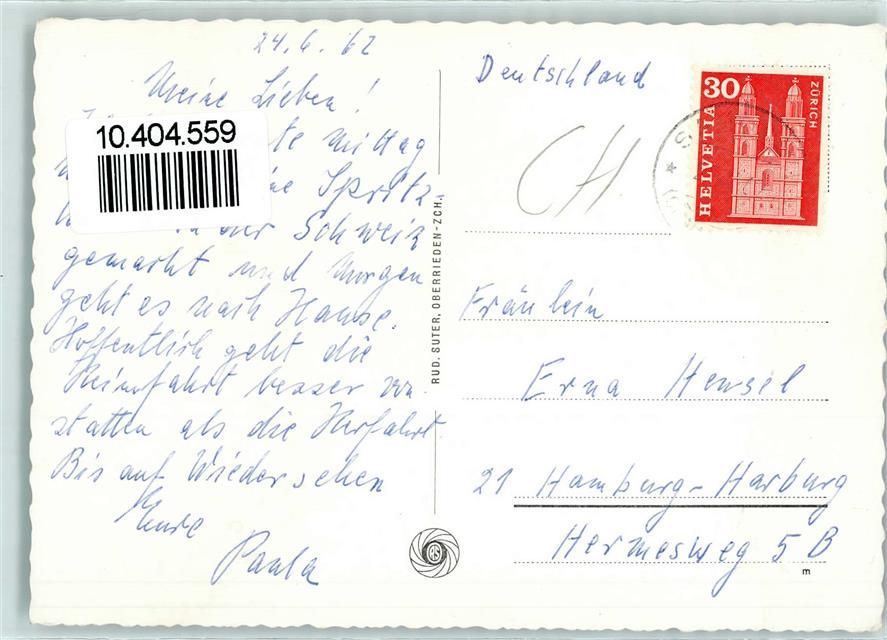 24.6.62
Meine Lieben!
10.404.559
mittag
Spritz-
in der Schweiz
gemacht und Morgen
geht es nach Hause.
Hoffentlich geht die
Heimfahrt besser von
statten als die Herfahrt.
Bis auf Wiedersehen
Eure
Paula
RUD. SUTER, OBERRIEDEN-ZCH.
Deutschland
CH
30
HELVETIA
ZÜRICH
Fräulein
Erna Hensel
21 Hamburg-Harburg
Hermesweg 5 B
m